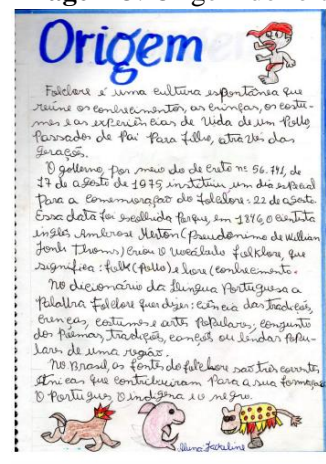 Origem
Folclore é uma cultura espontânea que
reúne os conhecimentos, as crenças, os costu-
mes e as experiências de vida de um Povo
Passados de Pai Para filho, através das
gerações.
O governo, por meio do decreto nº 56.741, de
17 de agosto de 1975, instituiu um dia especial
Para a comemoração do folclore: 22 de agosto.
Essa data foi escolhida porque, em 1846, o cientista
inglês Ambrose Merton (pseudônimo de William
John Thoms) criou o vocábulo folklore, que
significa: folk (povo) e lore (conhecimento.
No dicionário da língua Portuguesa a
Palavra Folclore quer dizer: ciência das tradições,
crenças, costumes e arts Populares; conjunto
dos Poemas, tradições, canções ou lendas Popu-
lares de uma região.
No Brasil, as fontes do folclore são três correntes
étnicas que contribuíram Para a sua formação
O Português, O indígena e o negro.